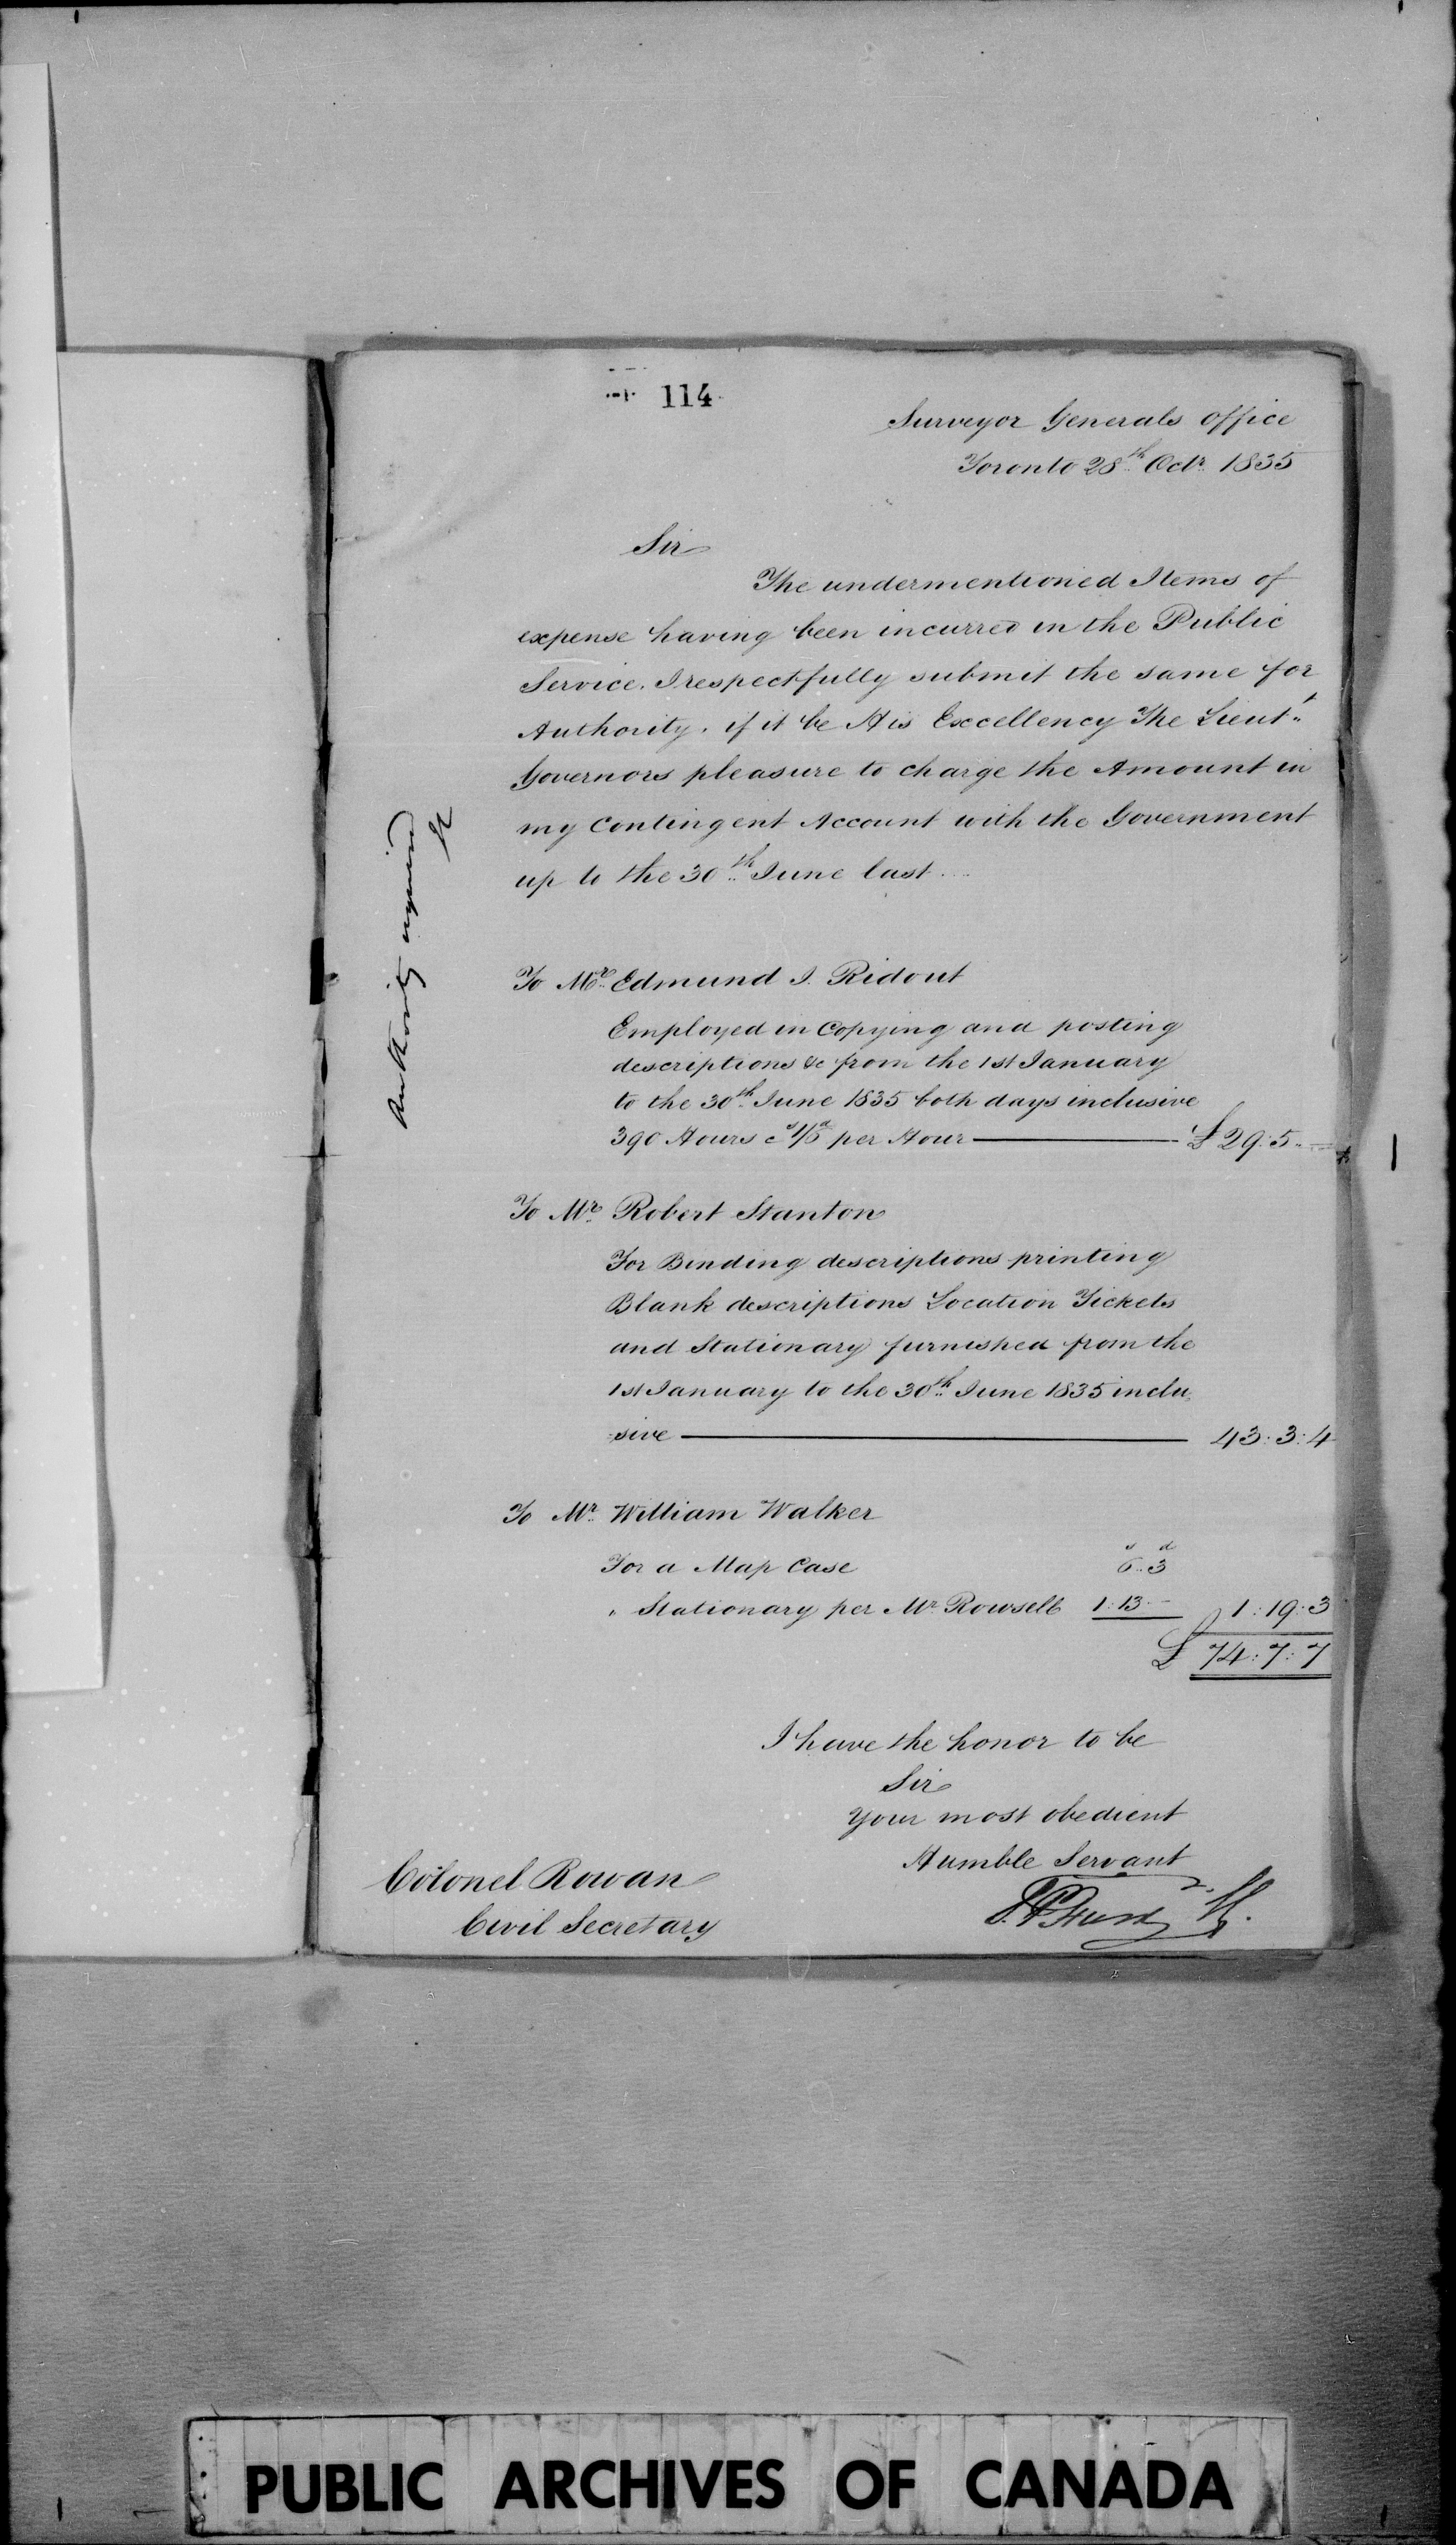 114
Surveyor Generals Office
Toronto 28th Octr 1835
Sir
The undermentioned Items of
expense having been incurred in the Public
Service. I respectfully submit the same for
Authority, if it be His Excellency The Lieut.t
Governors pleasure to charge the Amount in
my Contingent Account with the Government
up to the 30th June last.
Authority required
To Mr. Edmund I. Ridout
Employed in Copying and posting
descriptions &c from the 1st January
to the 30th June 1835 both days inclusive
390 Hours per Hour — £29:5
To Mr. Robert Stanton
For Binding descriptions printing
Blank descriptions Location Tickets
and Stationary furnished from the
1st January to the 30th June 1835 inclu
sive — 43:3:4
To Mr. William Walker
s d
For a Map Case 6..3
" Stationary per Mr. Rowsell 1:13:- 1:19:3
£ 74:7:7
I have the honor to be
Sir
Your most obedient
Humble Servant
Colonel Rowan
Civil Secretary
PUBLIC ARCHIVES OF CANADA